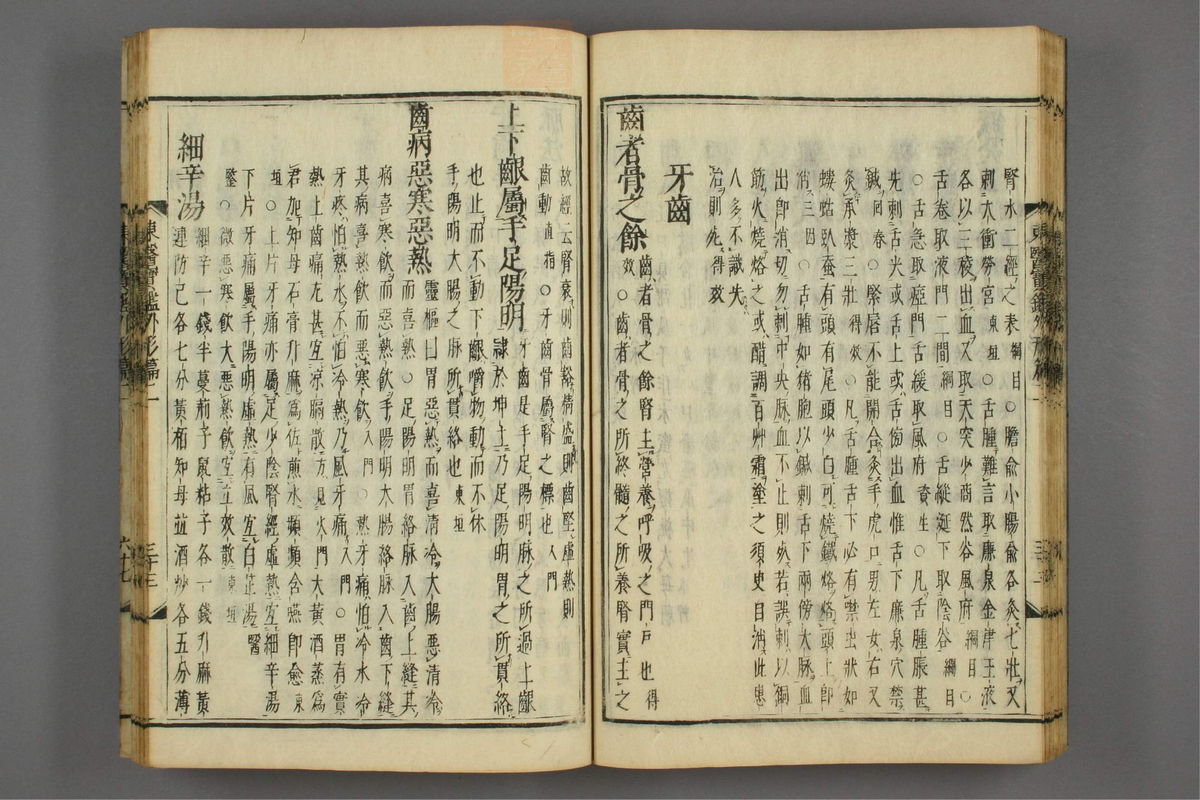 腎水二經之表綱目○膽俞小腸俞各灸七壯又
刺太衝勞宮東垣○舌腫難言取廉泉金津玉液
各以三稜出血又取天突少商然谷風府綱目○
舌卷取液門二間綱目○舌縱涎下取陰谷綱目
○舌急取瘂門舌緩取風府資生○凡舌腫脹甚
先刺舌尖或舌上或舌傍出血惟舌下廉泉穴禁
鍼回春○緊唇不能開合灸手虎口男左女右又
灸承漿三壯得效○凡舌腫舌下必有噤虫狀如
螻蛄臥蚕有頭有尾頭少白可燒鐵烙烙頭上即
消三因○舌腫如猪胞以鍼刺舌下兩傍大脉血
出即消切勿刺中央脉血不止則死若誤刺以銅
筯火燒烙之或醋調百艸霜塗之須臾自消此患
人多不識失
治則死得效
牙齒
齒者骨之餘 齒者骨之餘腎主營養呼吸之門戶也得
效○齒者骨之所終髓之所養腎實主之
故經云腎衰則齒豁精盛則齒堅虛熱則
齒動直指○牙齒骨屬腎之標也入門
上下齦屬手足陽明 牙齒是手足陽明脉之所過上齦
隷於坤土乃足陽明胃之所貫絡
也止而不動下齦嚼物動而不休
手陽明大腸之脉所貫絡也東垣
齒病惡寒惡熱 靈樞曰胃惡熱而喜清冷大腸惡清冷
而喜熱○足陽明胃絡脉入齒上縫其
病喜寒飮而惡熱飮手陽明大腸絡脉入齒下縫
其病喜熱飮而惡寒飮入門○熱牙痛怕冷水冷
牙疼怕熱水不怕冷熱乃風牙痛入門○胃有實
熱上齒痛尤甚宜凉膈散方見火門大黃酒蒸爲
君加知母石膏升麻爲佐煎水頻頻含嚥即愈東
垣○上片牙痛亦屬足少陰腎經虛熱宜細辛湯
下片牙痛屬手陽明虛熱有風宜白芷湯醫
鑒○微惡寒飮大惡熱飮宜立效散東垣
細辛湯 細辛一錢半蔓荊子鼠粘子各一錢升麻黃
連防己各七分黃栢知母並酒炒各五分薄
東醫寶鑑外形篇二
三十三